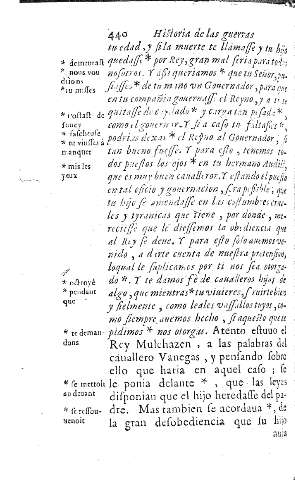 440 Historia de las guerras
tu edad, y si la muerte te llamasse y tu hijo
quedasse * por Rey, gran mal seria para todos
nosotros. Y assi queriamos * que tu Señor, pu-
siesses * de tu mano un Governador, para que
en tu compañia governasse el Reyno, y a ti te
quitasse de cuydado * y carga tan pesada * 
como el governar. Y si a caso tu faltasses *
podrias dexar * el Reyno al Governador, si
tan bueno fuesse. Y para esto, tenemos to-
dos puestos los ojos * en tu hermano Audili,
que es muy buen cavallero. Y estando el puesto
en tal oficio y governacion, sera posible, que
tu hijo se emendasse en las costumbres crue-
les y tyranicas que tiene, por donde, me-
reciesse que le diessemos la obediencia que
al Rey se deve. Y para esto solo avemos ve-
nido, a darte cuenta de nuestra pretension,
loqual te suplicamos por ti nos sea otorga-
do *. Y te damos fé de cavalleros hijos de
algo, que mientras * tu vivieres, servirte bien
y fielmente, como leales vassallos tuyos, co-
mo siempre avemos hecho, si aquesto que te
pidimos * nos otorgas. Atento estuvo el
Rey Mulhazen, a las palabras del
cavallero Vanegas, y pensando sobre
ello que haria en aquel caso; se
le ponia delante *, que las leyes
disponian que el hijo heredasse del pa-
dre. Mas tambien se acordava *, de
la gran desobediencia que su hijo
avia
* demeurast
* nous vou
drions
* tu misses
* ostast de
soucy
* vinsses à
manquer
* mis les
yeux
* octroyé
* pendant
que
* te deman-
dons
* se mettoit
au devant
* se ressou-
venoit